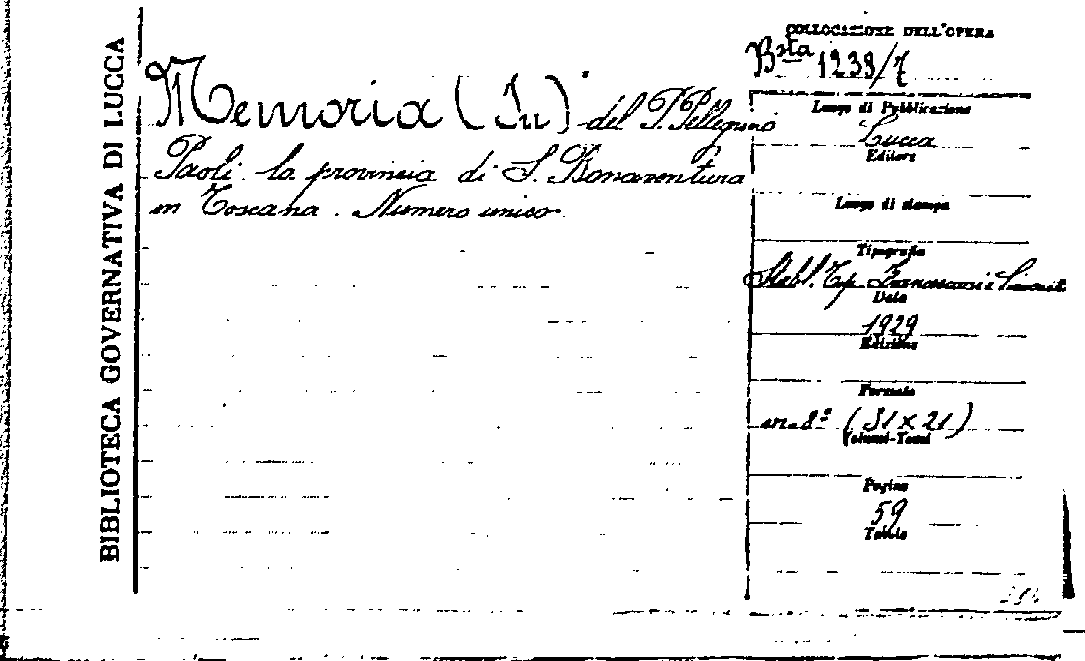 BIBLIOTECA GOVERNATIVA DI LUCCA
Memoria (In) del P. Pellegrino
Paoli la provincia di S. Bonaventura
in Toscana. Numero unico
COLLOCAZIONE DELL'OPERA
Bsta 1239/7
Luogo di Pubblicazione
Lucca
Editore
Luogo di stampa
Tipografia
Stabl. Tip.
Data
1929
Edizione
Formato
in-8° (31 x 21)
Volumi-Tomi
Pagine
59
Tabole